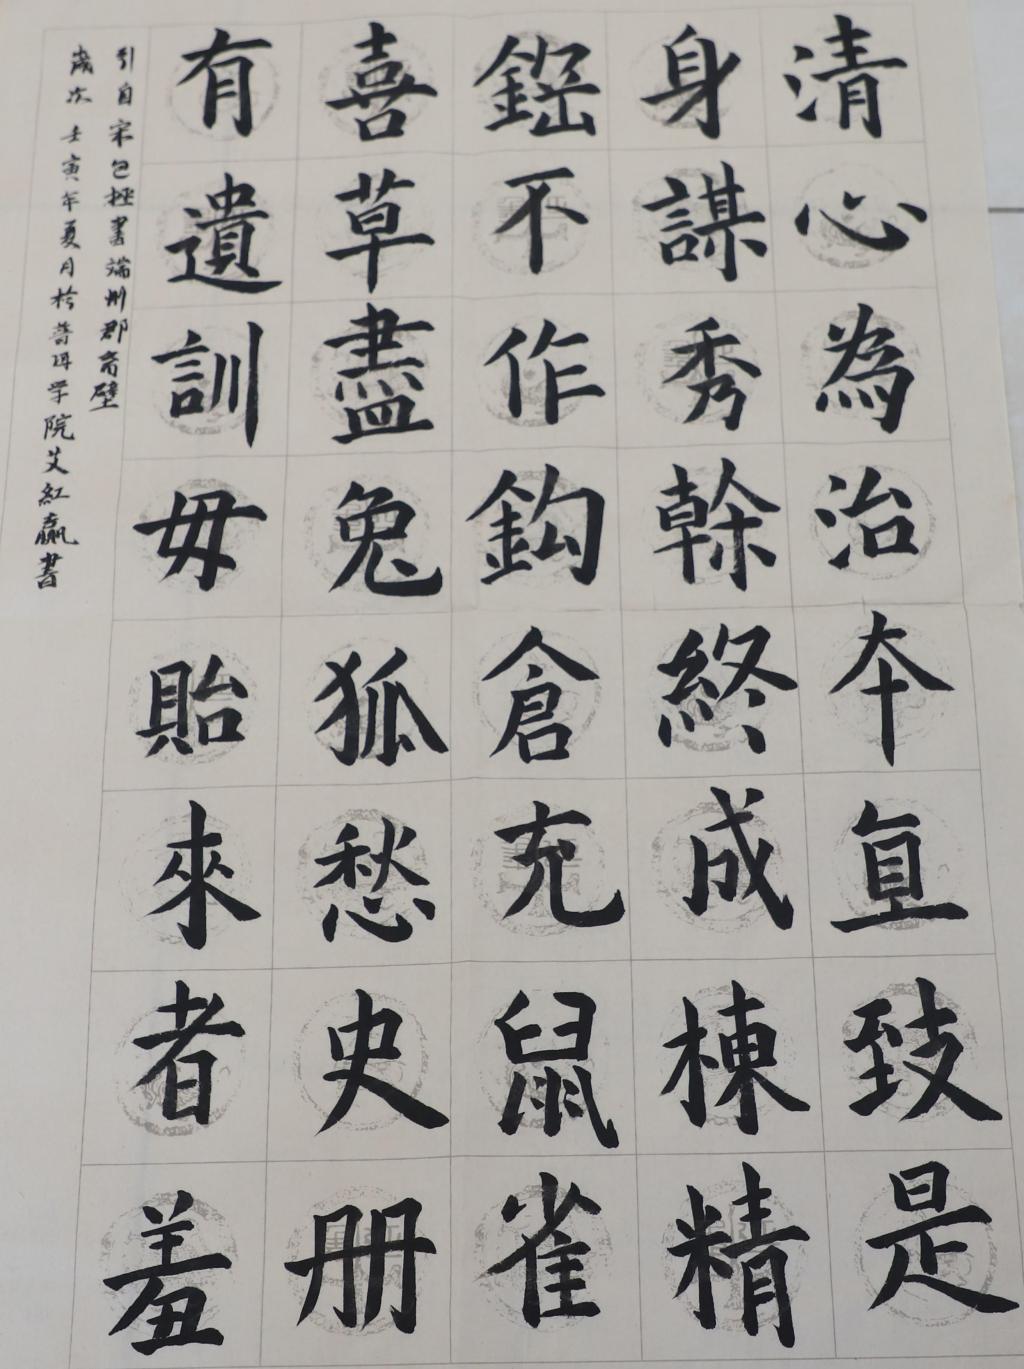 清心為治本直致是
身謀秀榦終成棟精
鋼不作鈎倉充鼠雀
喜草盡兔狐愁史册
有遺訓毋貽來者羞
引自宋包拯書端州郡齋壁
歲次壬寅年夏月於普洱学院艾紅贏書